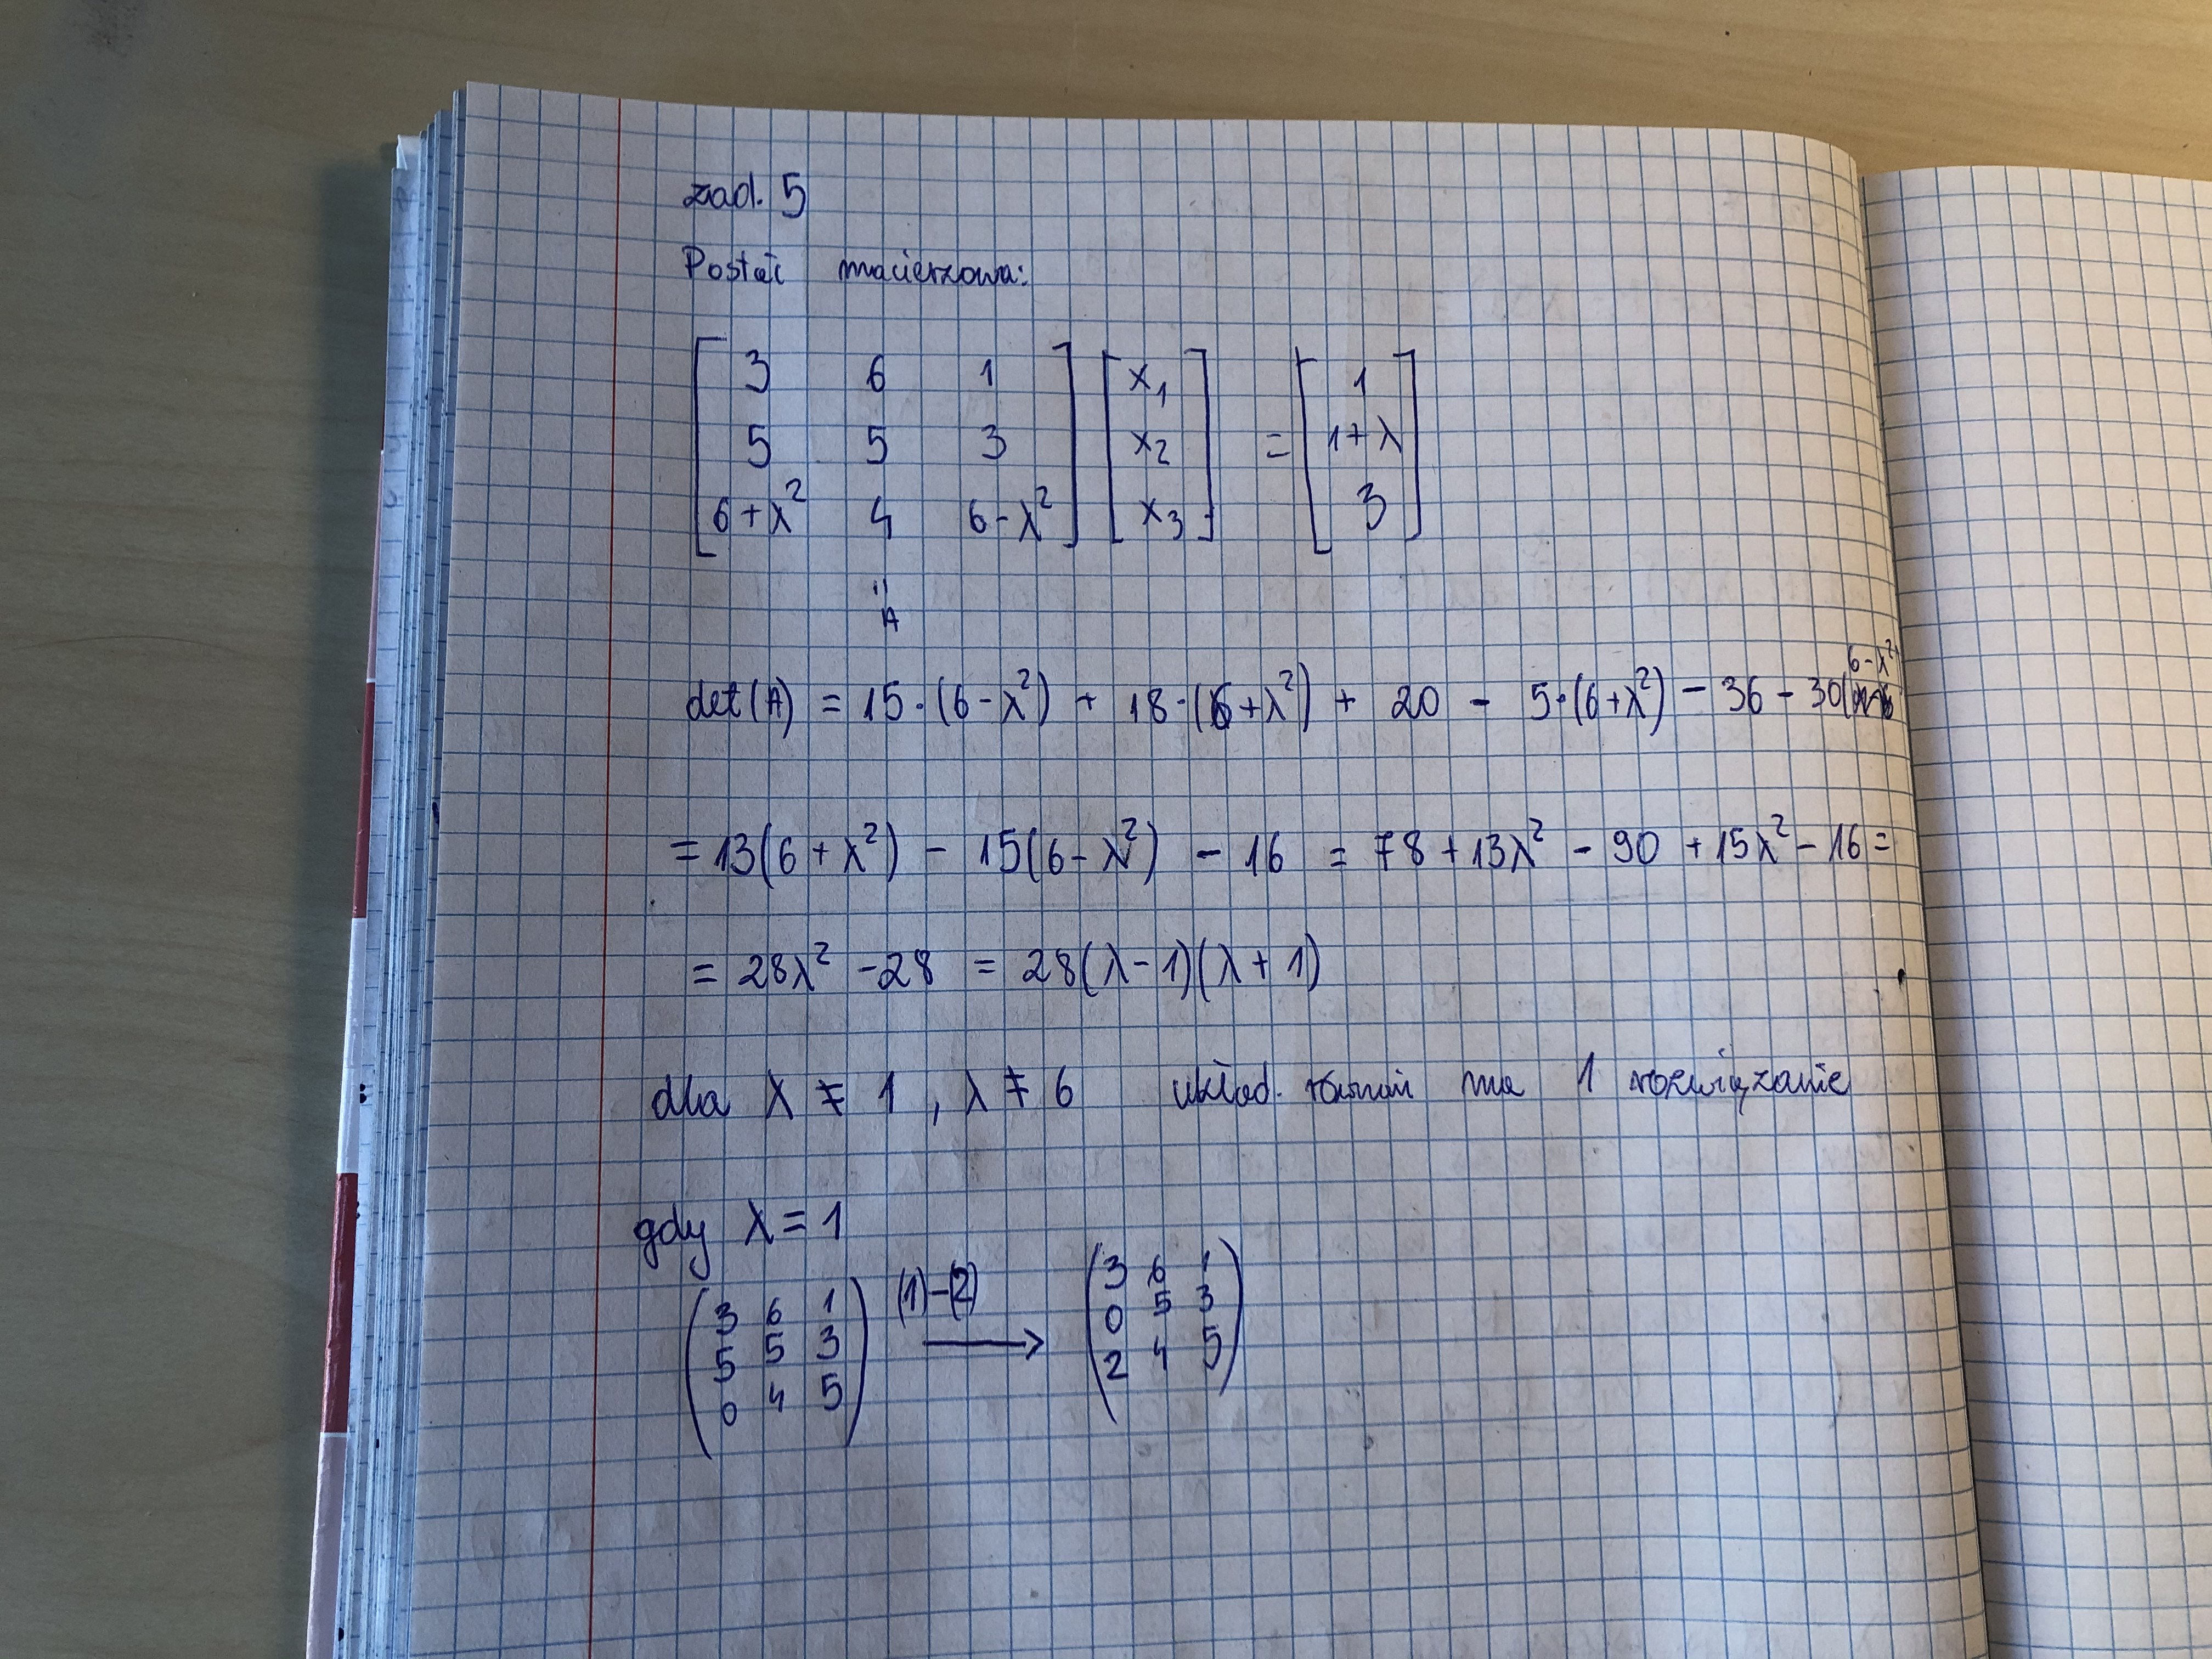 zad. 5
Postać macierzowa:
[ 3 6 1 ] [ x₁ ] [ 1 ]
[ 5 5 3 ] [ x₂ ] = [ 1+λ ]
[ 6+λ² 4 6-λ² ] [ x₃ ] [ 3 ]
"
A
det(A) = 15·(6-λ²) + 18·(6+λ²) + 20 - 5·(6+λ²) - 36 - 30(6-λ²
= 13(6+λ²) - 15(6-λ²) - 16 = 78 + 13λ² - 90 + 15λ² - 16 =
= 28λ² - 28 = 28(λ-1)(λ+1)
dla λ ≠ 1 , λ ≠ 6 układ. równań ma 1 rozwiązanie
gdy λ = 1
( 3 6 1 ) (1)-(2) ( 3 6 1 )
( 5 5 3 ) ⟶ ( 0 5 3 )
( 0 4 5 ) ( 2 4 5 )